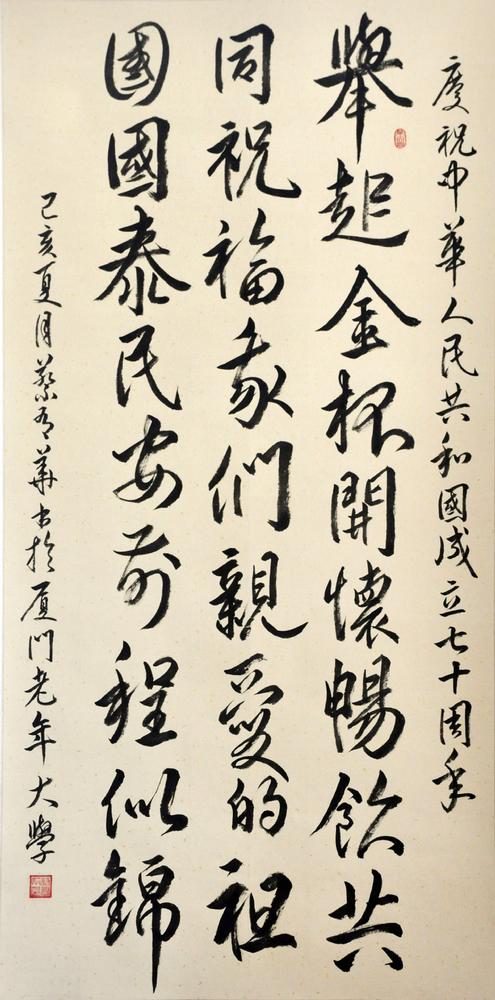 慶祝中華人民共和國成立七十周年
舉起金杯開懷暢飲共
同祝福我們親愛的祖
國國泰民安前程似錦
己亥夏月蔡秀華书於厦門老年大學